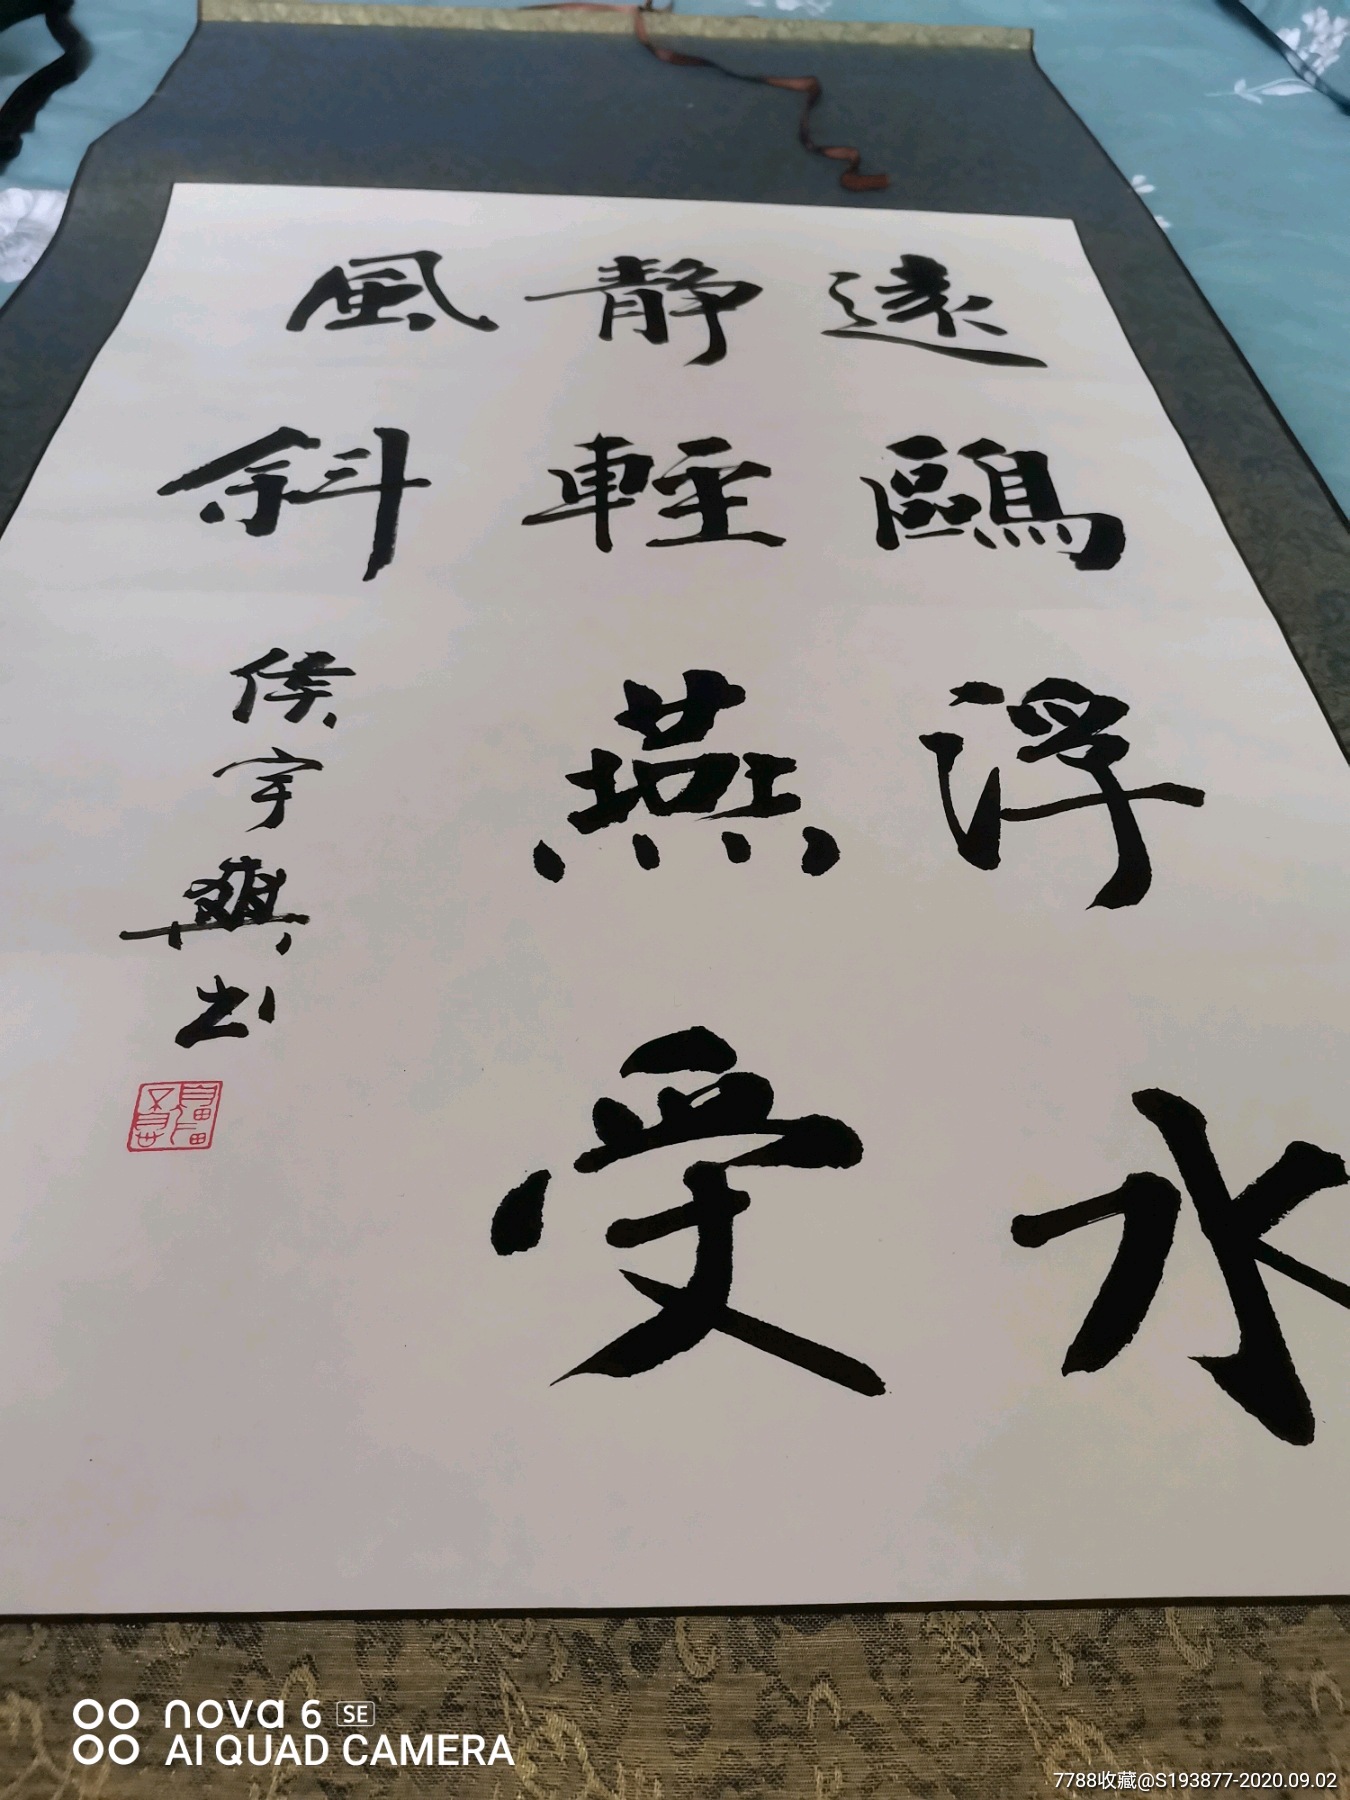 遠鷗浮水
静輕燕受
風斜
侯宇興书
nova 6 SE
AI QUAD CAMERA
7788收藏@S193877-2020.09.02